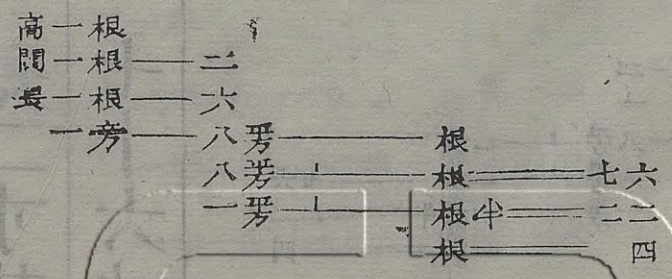 高一根
闊一根——二
長一根——六
一立方——八平方————根
八平方—⊥—根═══七六
一平方—⊥—根半═══二二
根═══四